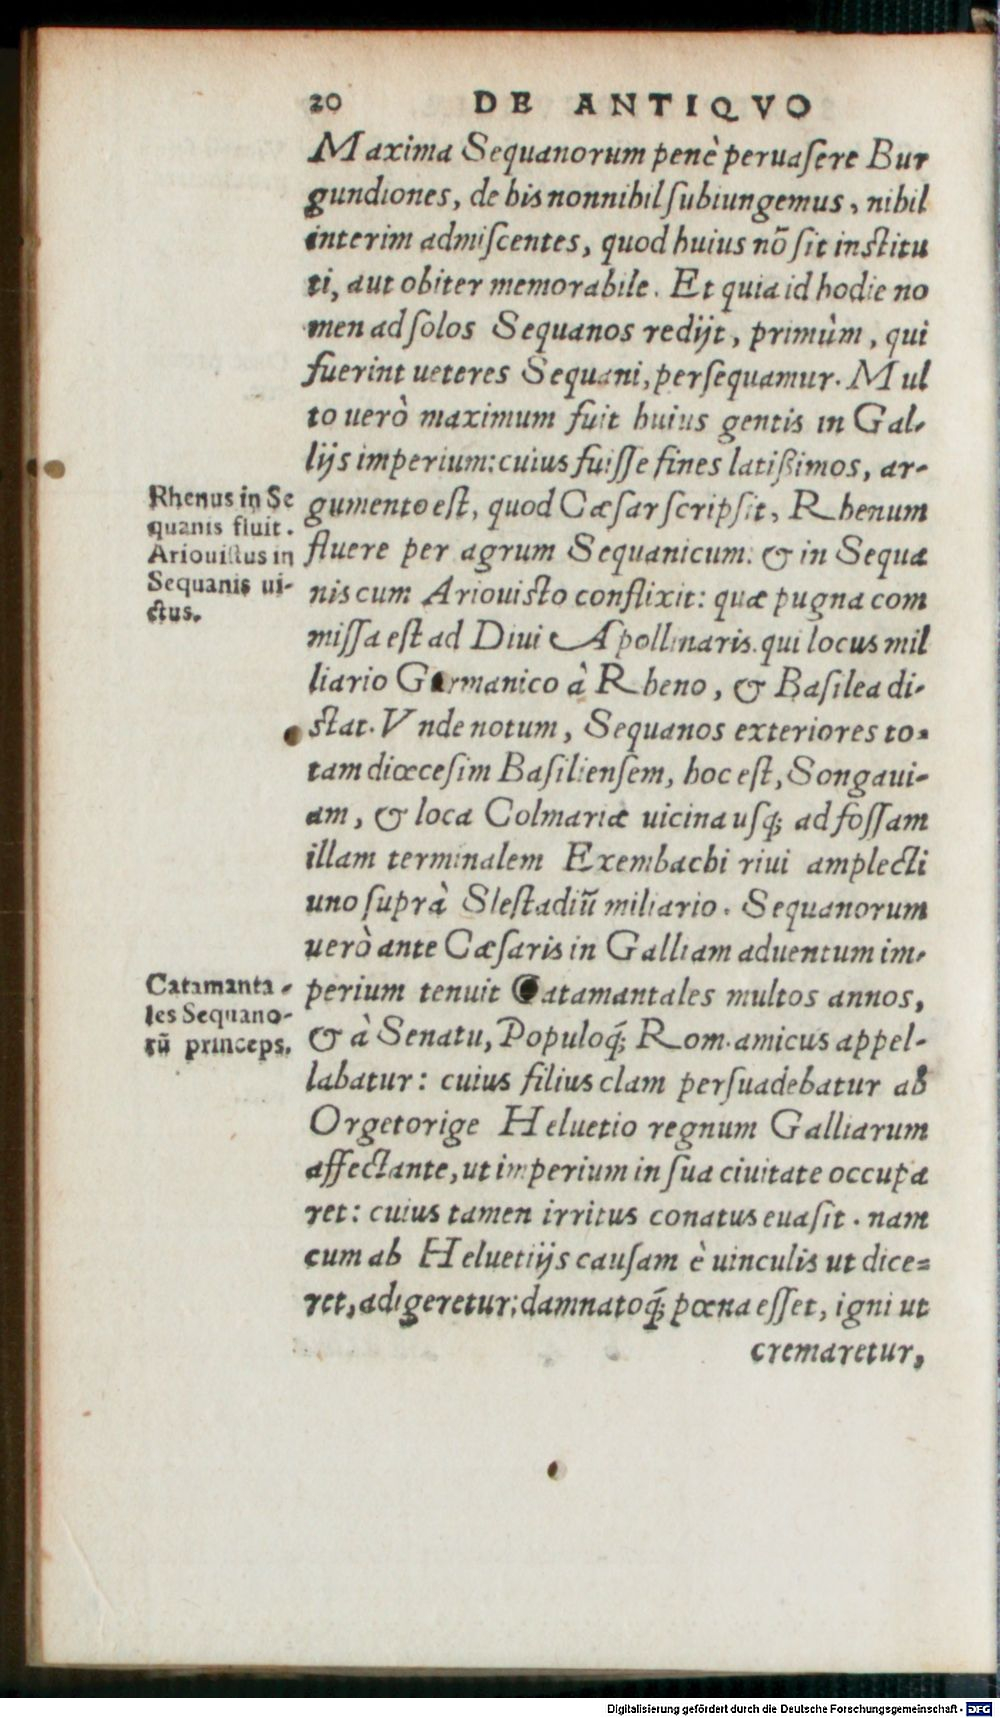 20 DE ANTIQVO
Maxima Sequanorum penè peruaſere Bur
gundiones, de his nonnihil ſubiungemus, nihil
interim admiſcentes, quod huius nõ ſit inſtitu
ti, aut obiter memorabile. Et quia id hodie no
men ad ſolos Sequanos redijt, primùm, qui
fuerint ueteres Sequani, perſequamur. Mul
to uerò maximum fuit huius gentis in Gal-
lijs imperium: cuius fuiſſe fines latißimos, ar-
Rhenus in Se
quanis fluit.
Ariouiſtus in
Sequanis ui-
ctus.
gumento eſt, quod Cæſar ſcripſit, Rhenum
fluere per agrum Sequanicum. & in Sequa
nis cum Ariouiſto conflixit: quæ pugna com
miſſa eſt ad Diui Apollinaris. qui locus mil
liario Germanico à Rheno, & Baſilea di-
ſtat. Vnde notum, Sequanos exteriores to-
tam diœceſim Baſilienſem, hoc eſt, Songaui-
am, & loca Colmariæ uicina uſq; ad foſſam
illam terminalem Exembachi riui amplecti
uno ſuprà Sleſtadiũ miliario. Sequanorum
uerò ante Cæſaris in Galliam aduentum im-
Catamanta-
les Sequano-
rũ princeps.
perium tenuit Catamantales multos annos,
& à Senatu, Populoq́; Rom. amicus appel-
labatur: cuius filius clam perſuadebatur ab
Orgetorige Heluetio regnum Galliarum
affectante, ut imperium in ſua ciuitate occupa
ret: cuius tamen irritus conatus euaſit. nam
cum ab Heluetijs cauſam è uinculis ut dice=
ret, adigeretur; damnatoq́; pœna eſſet, igni ut
cremaretur,
Digitalisierung gefördert durch die Deutsche Forschungsgemeinschaft - DFG